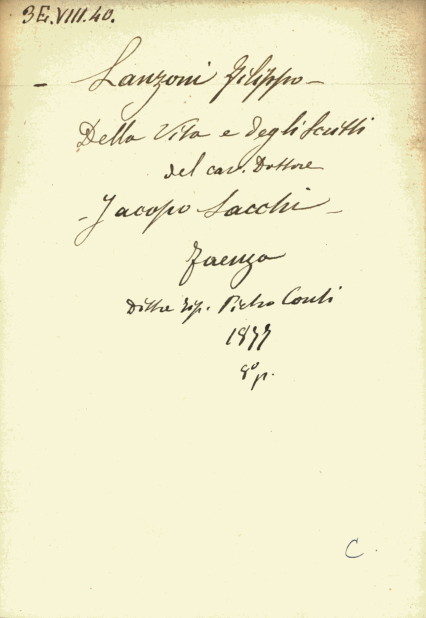 3E.VIII.40.
- Lanzoni Filippo -
Della Vita e degli Scritti
del cav. Dottore
- Jacopo Sacchi -
Faenza
Ditta tip. Pietro Conti
1877
8º p.
C.